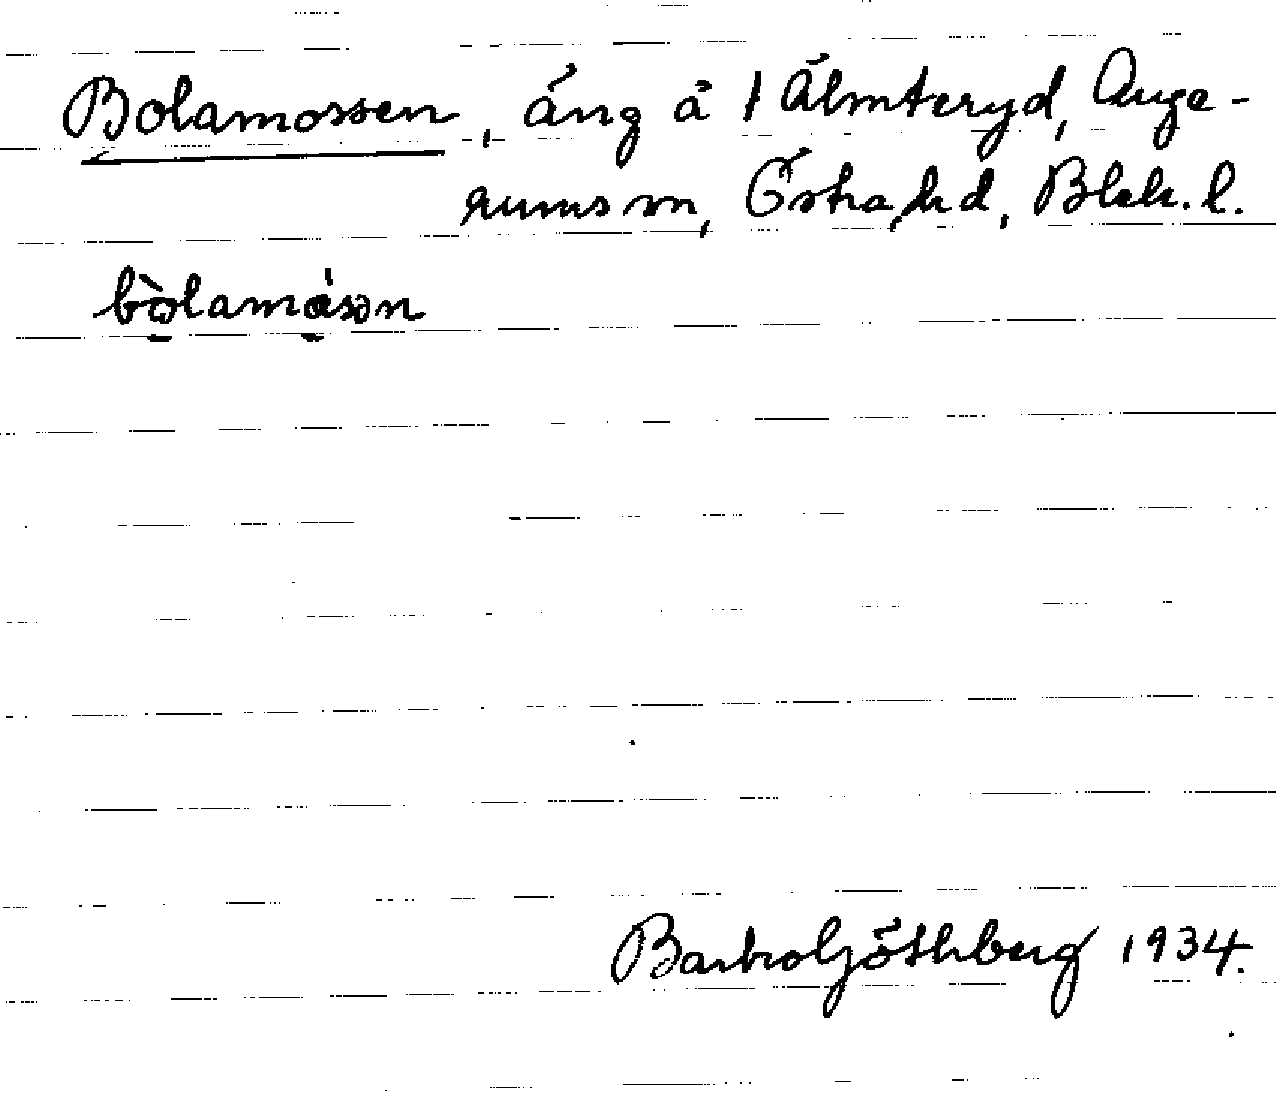 Bolamossen, äng å 1 Älmteryd, Auge-
rums sn, Östra hd, Blek. l.
bòlamåsən
Barbro Göthberg 1934.